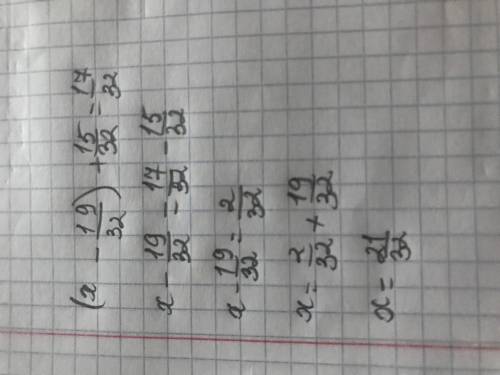 (x - 19/32) + 15/32 = 17/32
x - 19/32 = 17/32 - 15/32
x - 19/32 = 2/32
x = 2/32 + 19/32
x = 21/32